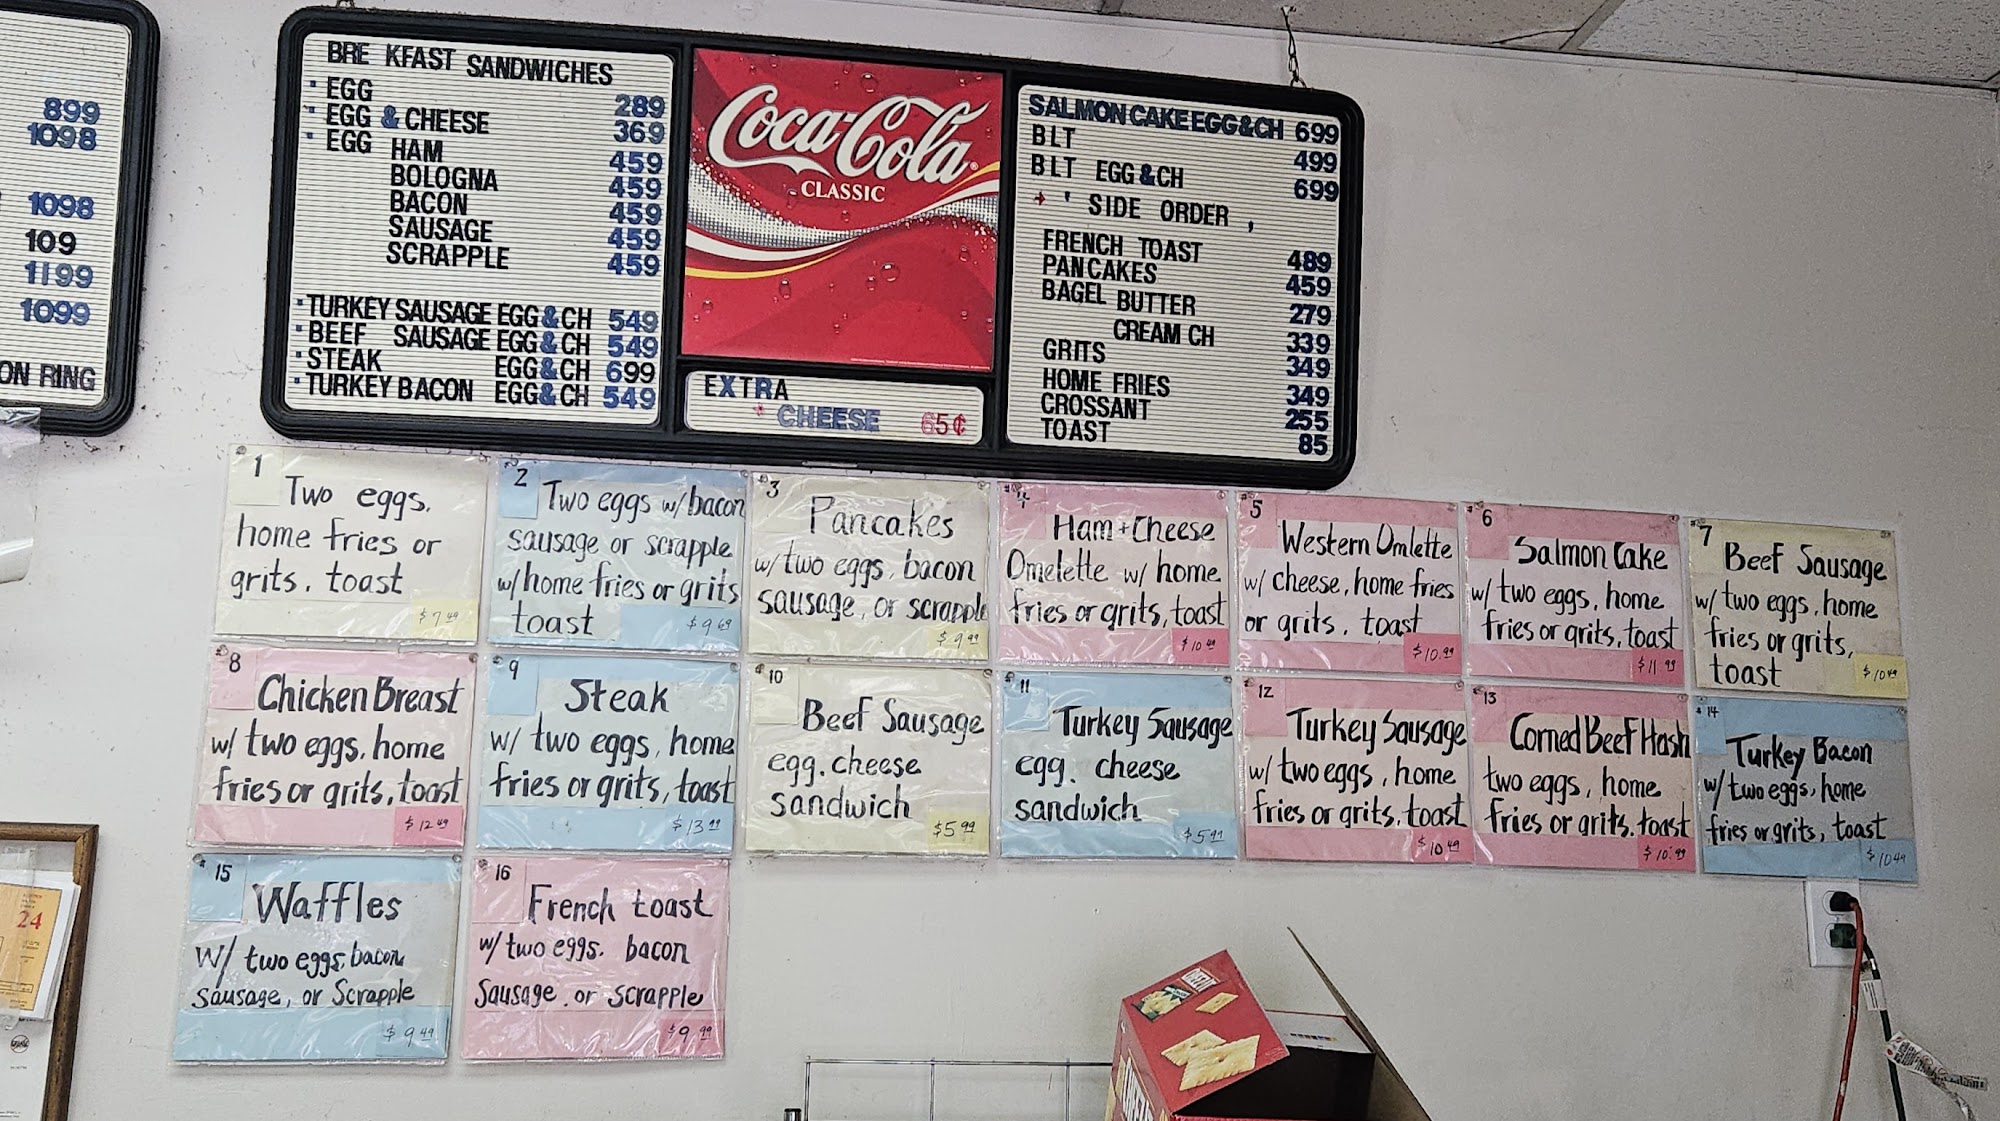 899
1098
1098
109
1199
1099
ON RING
BRE KFAST SANDWICHES
EGG 289
EGG & CHEESE 369
EGG HAM 459
BOLOGNA 459
BACON 459
SAUSAGE 459
SCRAPPLE 459
TURKEY SAUSAGE EGG & CH 549
BEEF SAUSAGE EGG & CH 549
STEAK EGG & CH 699
TURKEY BACON EGG & CH 549
Coca-Cola
CLASSIC
EXTRA
* CHEESE 65¢
SALMON CAKE EGG & CH 699
BLT 499
BLT EGG & CH 699
' SIDE ORDER ,
FRENCH TOAST 489
PANCAKES 459
BAGEL BUTTER 279
CREAM CH 339
GRITS 349
HOME FRIES 349
CROSSANT 255
TOAST 85
# 1
Two eggs,
home fries or
grits, toast
$7.49
# 2
Two eggs w/ bacon
sausage or scrapple
w/ home fries or grits
toast
$9.69
# 3
Pancakes
w/ two eggs, bacon
sausage, or scrapple
$9.99
# 4
Ham + Cheese
Omelette w/ home
fries or grits, toast
$10.49
# 5
Western Omlette
w/ cheese, home fries
or grits, toast
$10.99
# 6
Salmon Cake
w/ two eggs, home
fries or grits, toast
$11.99
# 7
Beef Sausage
w/ two eggs, home
fries or grits,
toast
$10.49
# 8
Chicken Breast
w/ two eggs, home
fries or grits, toast
$12.49
# 9
Steak
w/ two eggs, home
fries or grits, toast
$13.99
# 10
Beef Sausage
egg, cheese
sandwich
$5.99
# 11
Turkey Sausage
egg, cheese
sandwich
$5.99
# 12
Turkey Sausage
w/ two eggs, home
fries or grits, toast
$10.49
# 13
Corned Beef Hash
two eggs, home
fries or grits, toast
$10.99
# 14
Turkey Bacon
w/ two eggs, home
fries or grits, toast
$10.49
# 15
Waffles
w/ two eggs, bacon
sausage, or Scrapple
$9.49
# 16
French toast
w/ two eggs, bacon
Sausage, or scrapple
$9.99
24